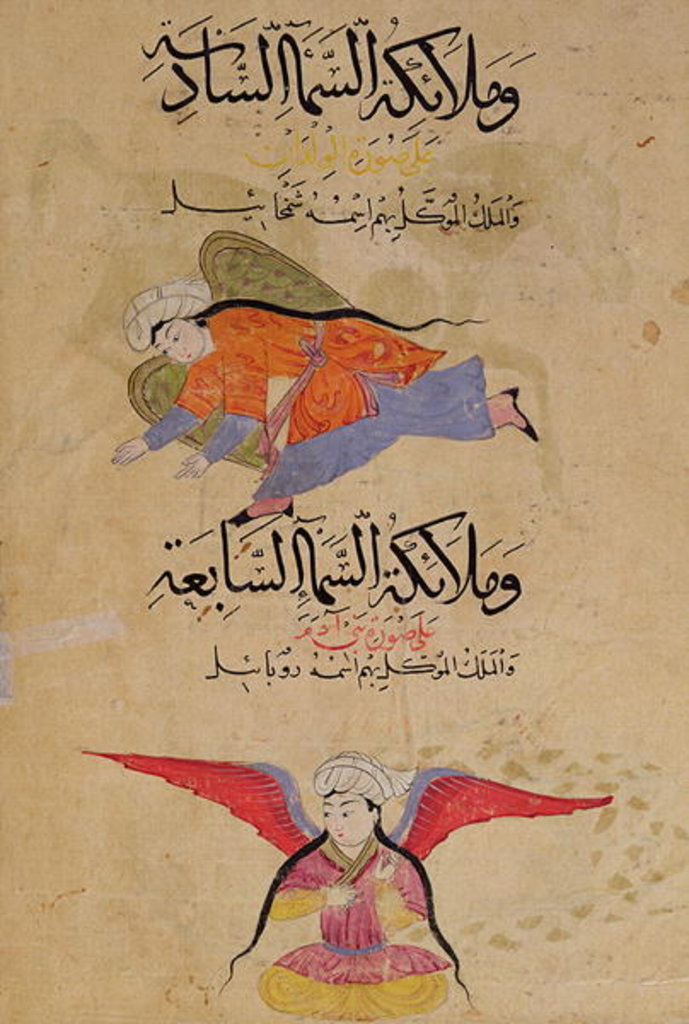 وَمَلَائِكَةُ السَّمَاءِ السَّادِسَةِ
عَلَى صُورَةِ الوِلْدَانِ
وَالمَلَكُ المُوَكَّلُ بِهِمْ اِسْمُهُ شَمْخَائِيل
وَمَلَائِكَةُ السَّمَاءِ السَّابِعَةِ
عَلَى صُورَةِ بَنِي آدَمَ
وَالمَلَكُ المُوَكَّلُ بِهِمْ اِسْمُهُ رُوبَائِيل